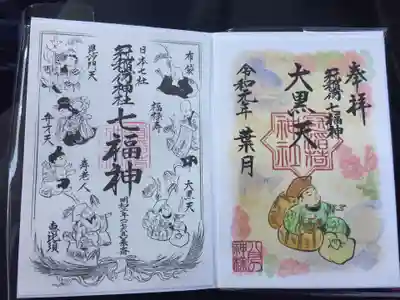 布袋
福禄寿
大黒天
日本七社
稲荷神社
七福神
毘沙門天
弁才天
寿老人
恵比須
奉拝
稲荷七福神
大黒天
令和元年 葉月